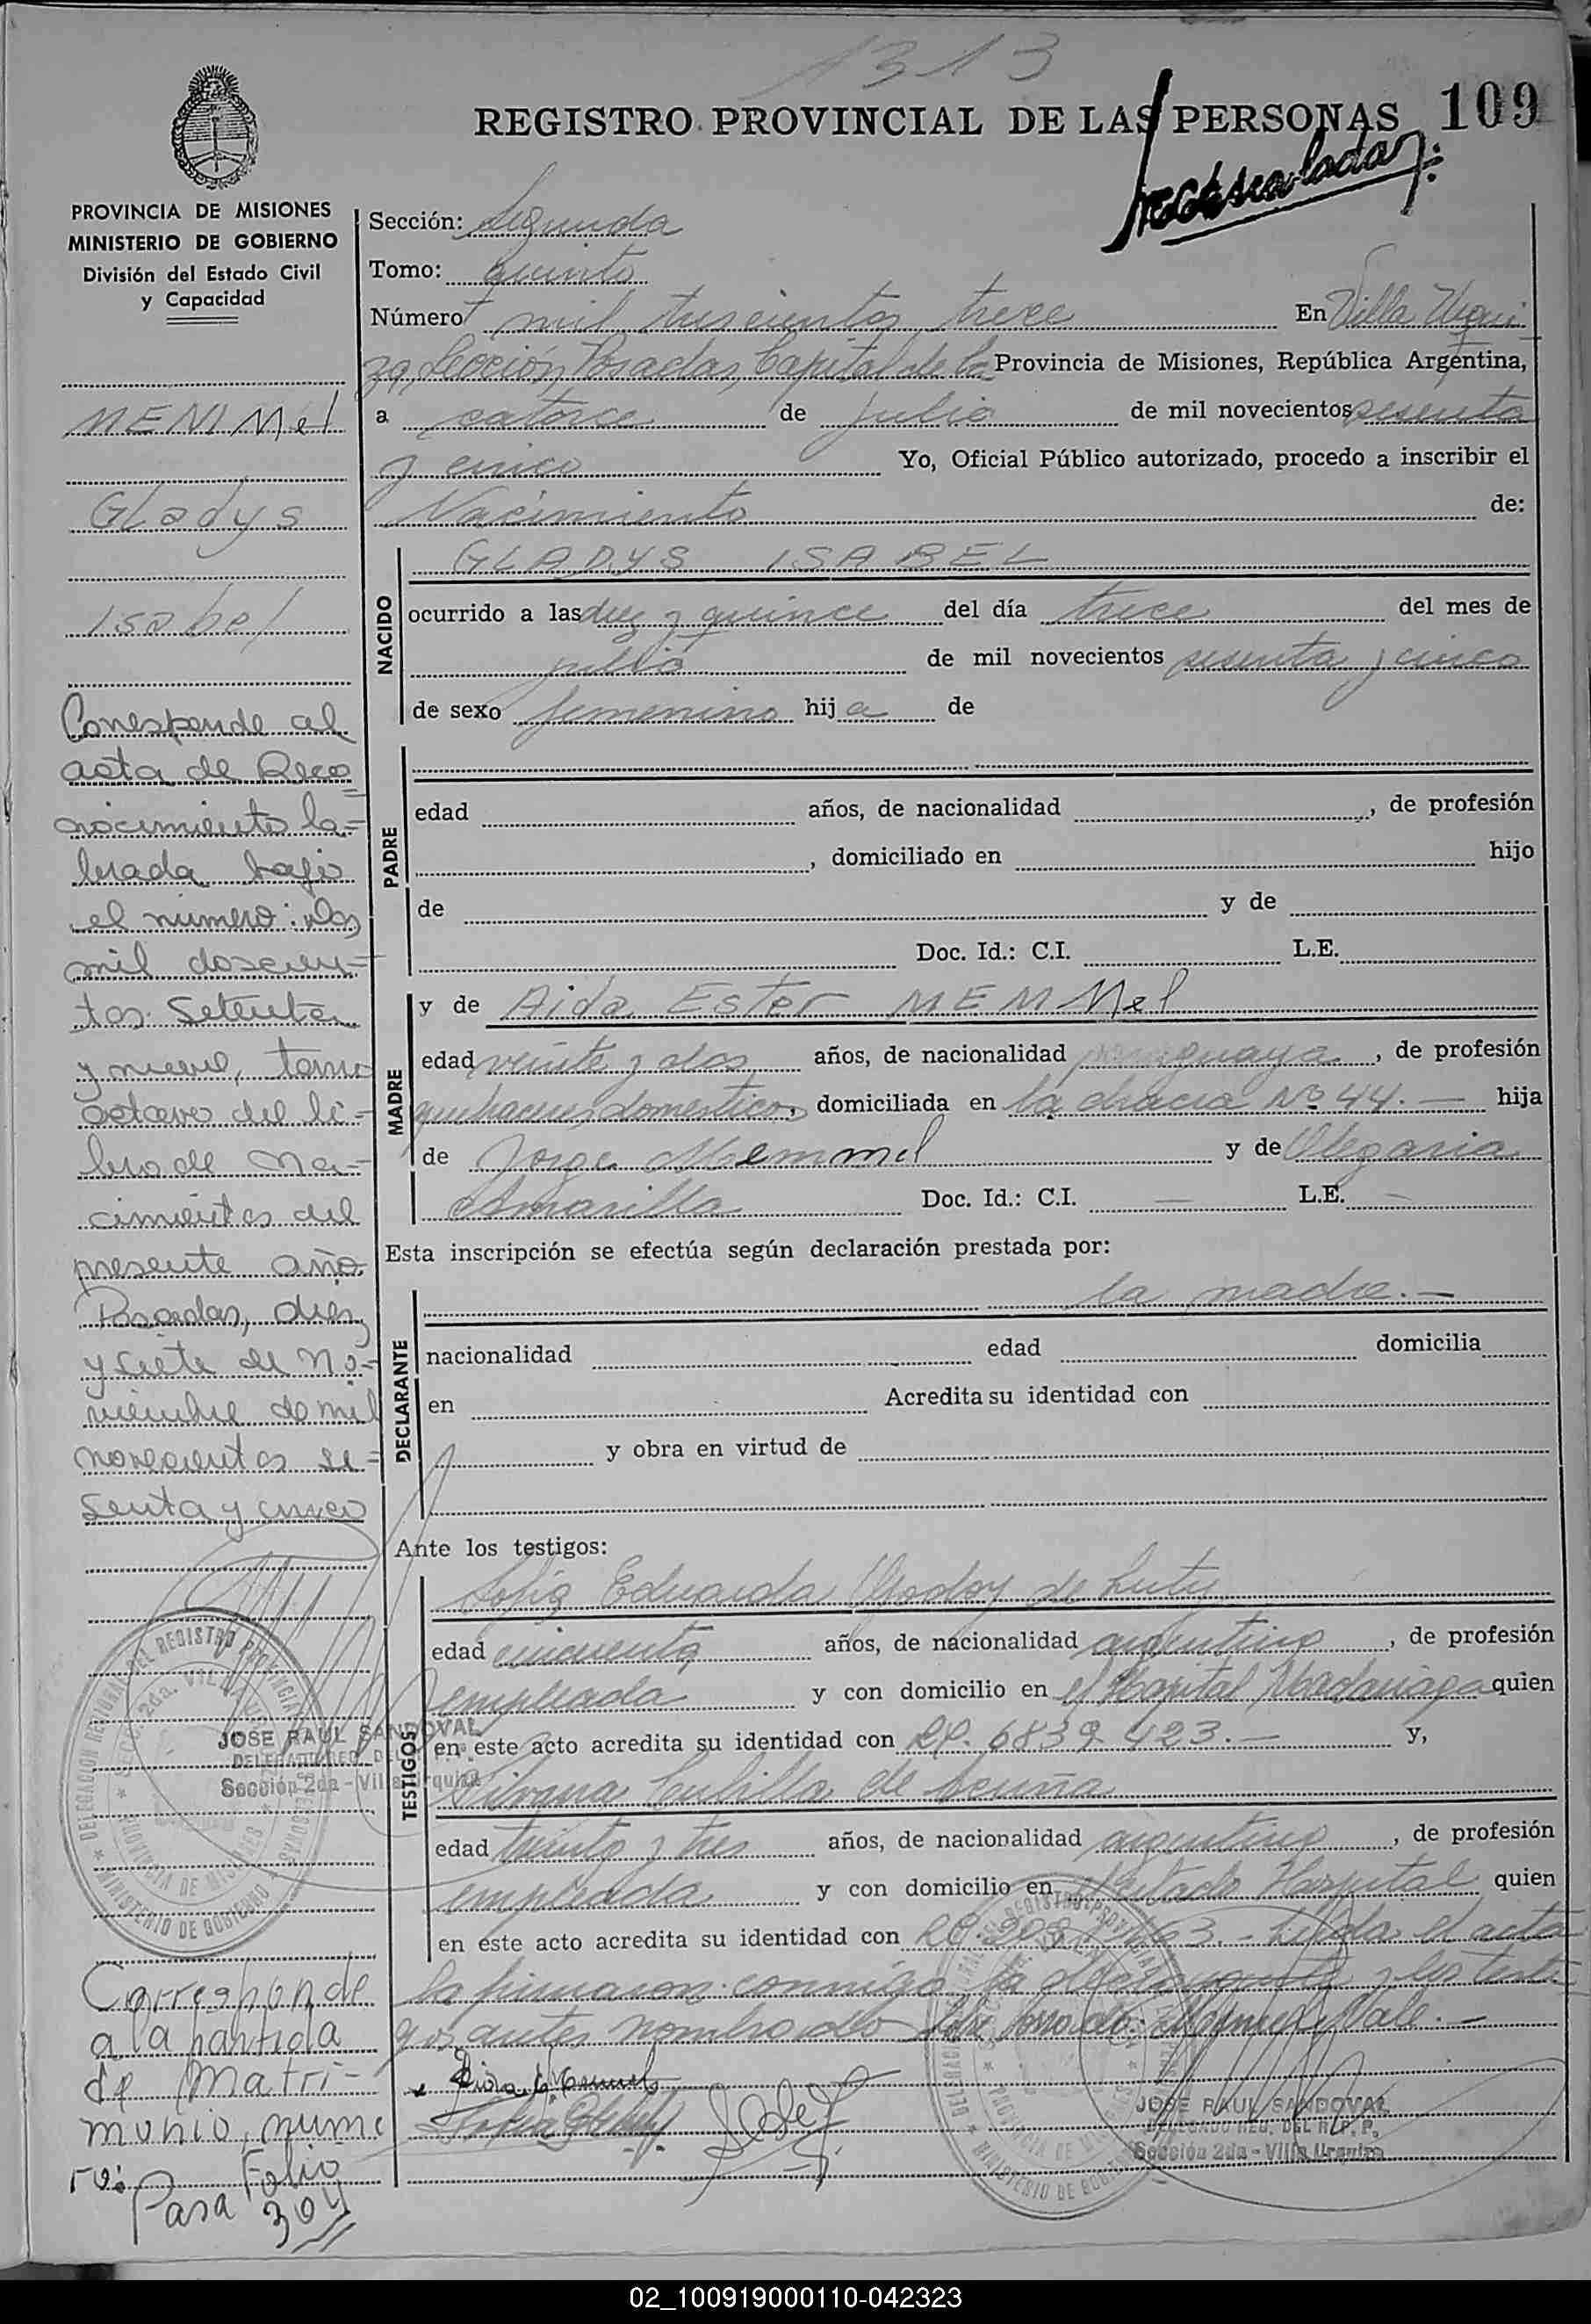 1313
REGISTRO PROVINCIAL DE LAS PERSONAS 109
PROVINCIA DE MISIONES
MINISTERIO DE GOBIERNO
División del Estado Civil
y Capacidad
MEMMel
Gladys
Isabel
Corresponde al
acta de Reco
nocimiento la-
brada bajo
el numero: dos
mil doscien-
tos Setenta
y nueve, tomo
octavo del li-
bro de Na-
cimientos del
presente año.
Posadas, diez
y siete de No-
viembre de mil
novecientos se-
senta y cinco
DELEGACION REGIONAL DEL REGISTRO PROVINCIAL DE LAS PERSONAS
SECC. 2da. VILLA URQUIZA
PROVINCIA DE MISIONES
MINISTERIO DE GOBIERNO
JOSE RAUL SANDOVAL
DELEGADO REG. DEL
Sección 2da - Villa Urquiza
Corresponde
a la partida
de Matri-
monio, nume
ro:
Pasa Folio
304
Sección: Segunda
Tomo: quinto
Número mil trescientos trece En Villa Urqui
za, Sección Posadas, Capital de la Provincia de Misiones, República Argentina,
a catorce de julio de mil novecientos sesenta
y cinco Yo, Oficial Público autorizado, procedo a inscribir el
Nacimiento de:
NACIDO
GLADYS ISABEL
ocurrido a las diez y quince del día trece del mes de
julio de mil novecientos sesenta y cinco
de sexo femenino hija de
PADRE
edad años, de nacionalidad , de profesión
, domiciliado en hijo
de y de
Doc. Id.: C.I. L.E.
MADRE
y de Aida Ester MEMMel
edad veinte y dos años, de nacionalidad paraguaya, de profesión
quehaceres domesticos, domiciliada en la chacra Nº 44.- hija
de Jorge Memmel y de Olegaria
Amarilla Doc. Id.: C.I. — L.E. —
Esta inscripción se efectúa según declaración prestada por:
DECLARANTE
la madre.-
nacionalidad edad domicilia
en Acredita su identidad con
y obra en virtud de
Ante los testigos:
TESTIGOS
Sofia Eduarda Godoy de
edad cincuenta años, de nacionalidad argentina, de profesión
empleada y con domicilio en el Hospital Madariaga quien
en este acto acredita su identidad con 6839 423.- y,
Silvana de Acuña
edad treinta y tres años, de nacionalidad argentina, de profesión
empleada y con domicilio en citado Hospital quien
en este acto acredita su identidad con Leida el acta
la firmaron conmigo, la declarante y los testi-
gos antes nombrados Sobre borrado: Memmel Vale.-
JOSE RAUL SANDOVAL
DELEGADO REG. DEL R. P. P.
Sección 2da - Villa Urquiza
02_100919000110-042323